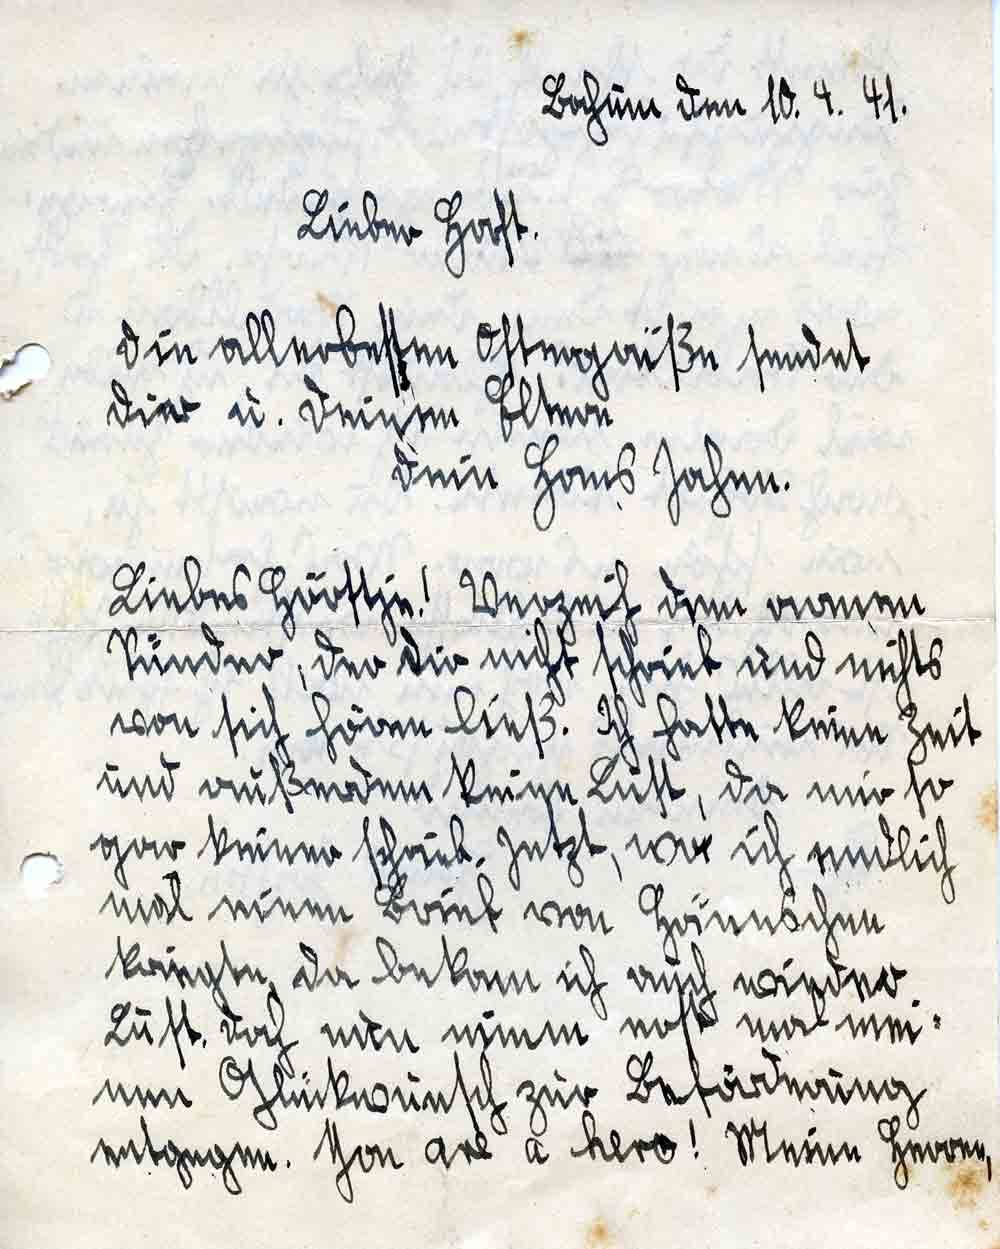 Bochum den 10. 4. 41.
Lieber Horst.
Die allerbesten Ostergrüße sendet
Dier u. Deinen Eltern
Dein Hans Jahen.
Liebes Hörstje! Verzeih dem armen
Sünder, der Dir nicht schrieb und nichts
von sich hören ließ. Ich hatte keine Zeit
und außerdem keine Lust, da mir so
gar keiner schrieb. Jetzt, wo ich endlich
mal einen Brief von Hännschen
kriegte, da bekam ich auch wieder
Lust. Doch nun nimm erst mal mei-
nen Glückwunsch zur Beförderung
entgegen. You are a hero! Meine Herren,